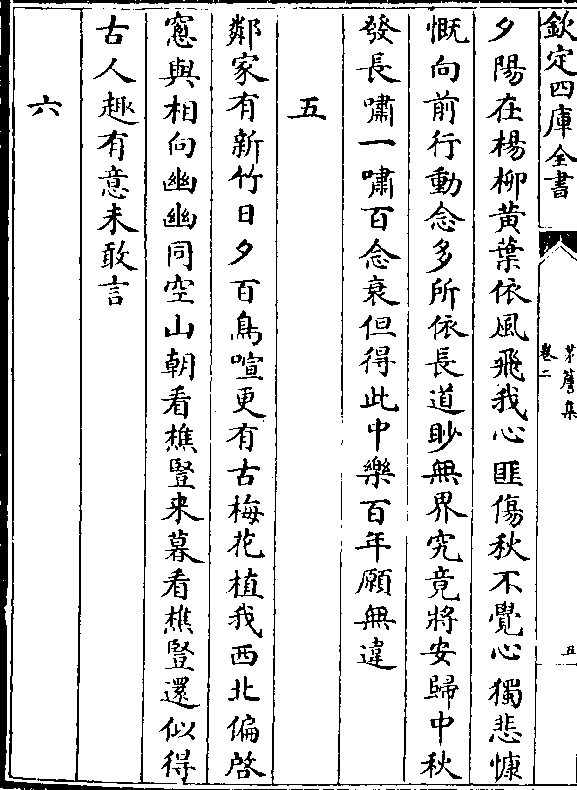 欽定四庫全書
茅簷集
卷二
五
夕陽在楊柳黃葉依風飛我心匪傷秋不覺心獨悲慷
慨向前行動念多所依長道眇無界究竟將安歸中秋
發長嘯一嘯百念衰但得此中樂百年願無違
五
鄰家有新竹日夕百鳥喧更有古梅花植我西北偏啓
窻與相向幽幽同空山朝看樵豎来暮看樵豎還似得
古人趣有意未敢言
六